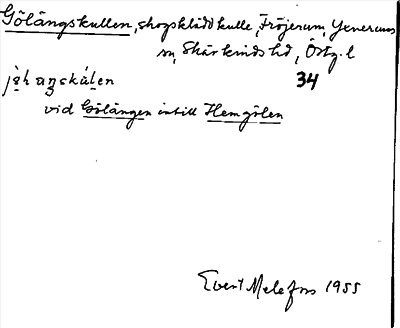 Gölängskullen, skogsklädd kulle, Fröjerum, Yxnerums
sn, Skärkinds hd, Östg. l
34
vid Gölängen intill Hemgölen
Evert Melefors 1955